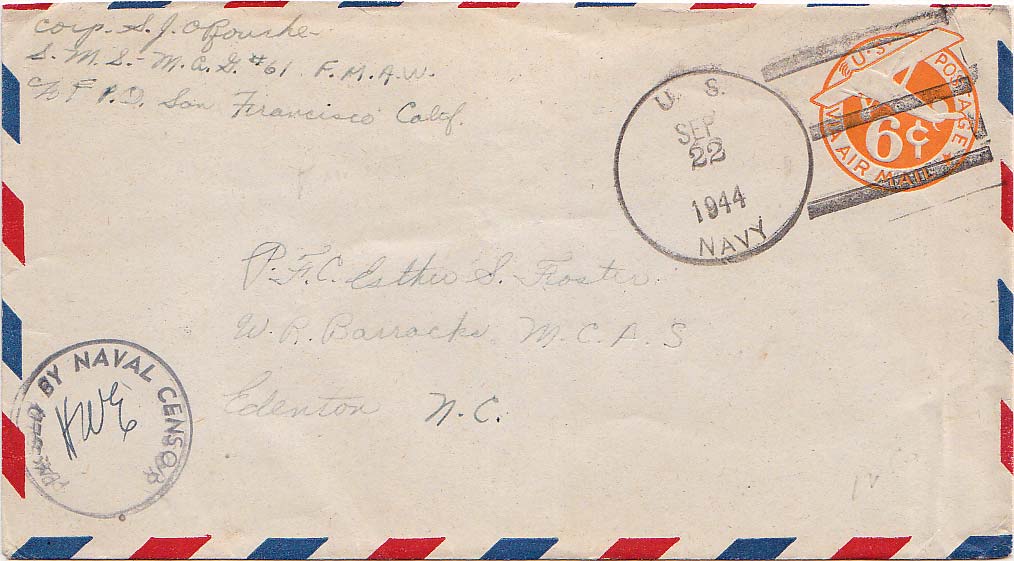 Corp. S. J. O'Rourke
S. M. S. - M. A. G. #61 F. M. A. W.
c/o F. P. O. San Francisco Calif.
U. S.
SEP
22
1944
NAVY
U.S. POSTAGE
6¢
VIA AIR MAIL
P.F.C. Esther S. Foster
W. R. Barracks M. C. A. S
Edenton N. C.
BY NAVAL CENSOR